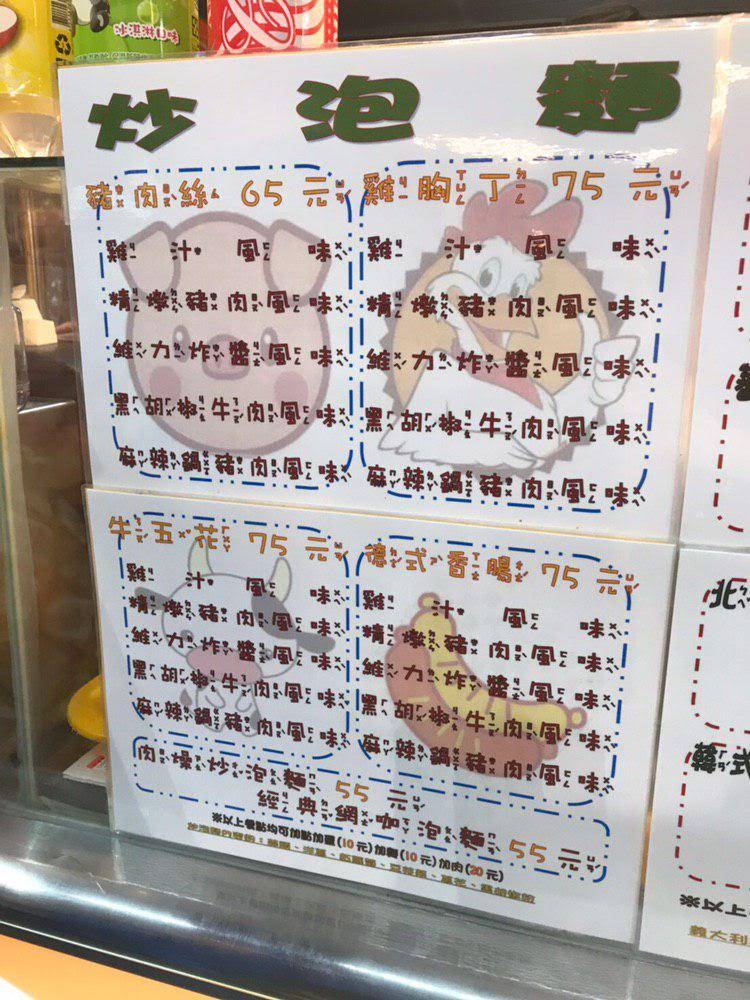 冰淇淋口味
炒泡麵
豬肉絲 65元
雞汁風味
精燉豬肉風味
維力炸醬風味
黑胡椒牛肉風味
麻辣鍋豬肉風味
雞胸丁 75元
雞汁風味
精燉豬肉風味
維力炸醬風味
黑胡椒牛肉風味
麻辣鍋豬肉風味
牛五花 75元
雞汁風味
精燉豬肉風味
維力炸醬風味
黑胡椒牛肉風味
麻辣鍋豬肉風味
德式香腸 75元
雞汁風味
精燉豬肉風味
維力炸醬風味
黑胡椒牛肉風味
麻辣鍋豬肉風味
肉燥炒泡麵 55元
經典網咖泡麵 55元
※以上餐點均可加點加蛋(10元)加麵(10元)加肉(20元)
北
韓式
※以上
義大利